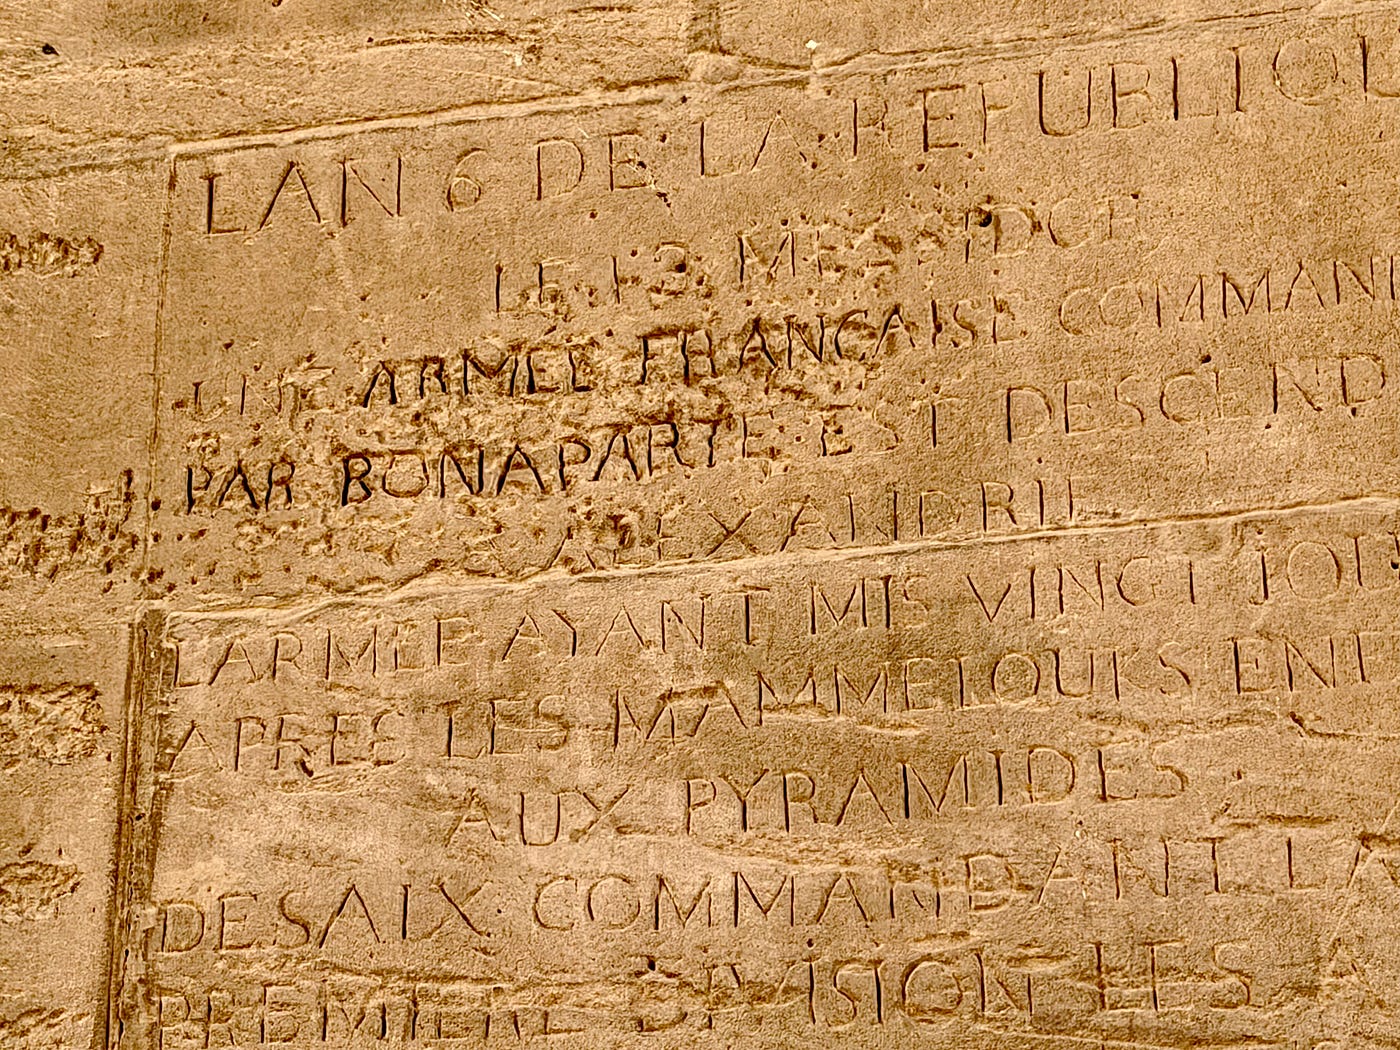 LAN 6 DE LA REPUBLIQU
LE 13 MESSIDOR
UNE ARMÉE FRANÇAISE COMMAN
PAR BONAPARTE EST DESCEND
A ALEXANDRIE
LARMEE AYANT MIS VINGT JOU
APRES LES MAMMELOUKS EN
AUX PYRAMIDES
DESAIX COMMANDANT LA
PREMIERE DIVISION LES A